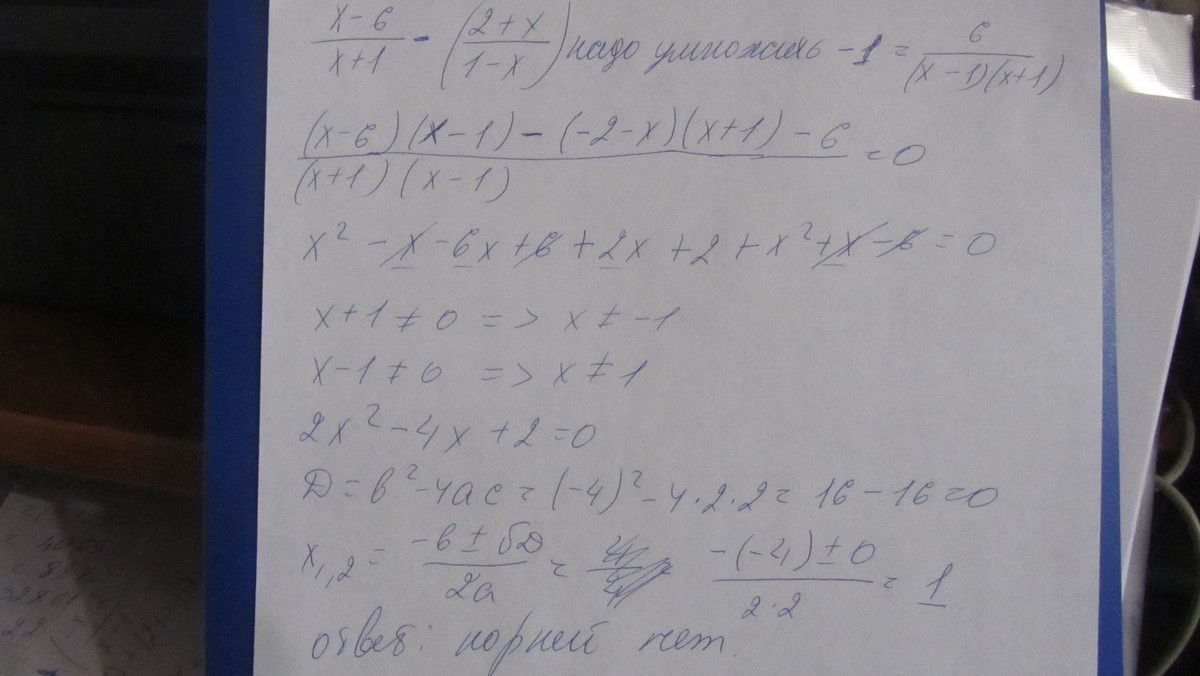 x-6/x+1 - (2+x/1-x) надо умножить -1 = 6/(x-1)(x+1)
(x-6)(x-1)-(-2-x)(x+1)-6/(x+1)(x-1) = 0
x² - x - 6x + 6 + 2x + 2 + x² + x - 6 = 0
x+1≠0 => x≠-1
x-1≠0 => x≠1
2x² - 4x + 2 = 0
D = b² - 4ac = (-4)² - 4·2·2 = 16 - 16 = 0
x₁,₂ = -b±√D/2a = -(-4)±0/2·2 = 1
ответ: корней нет.